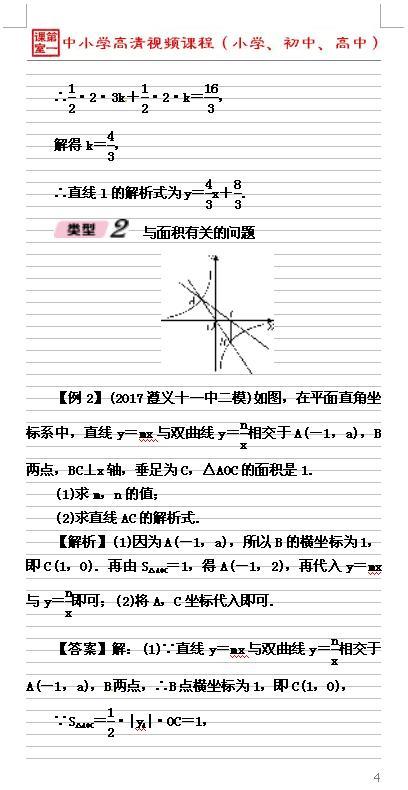 第一课室 中小学高清视频课程（小学、初中、高中）
∴1/2·2·3k＋1/2·2·k＝16/3，
解得 k＝4/3，
∴直线 l 的解析式为 y＝4/3x＋8/3.
类型 2 与面积有关的问题
【例 2】(2017 遵义十一中二模)如图，在平面直角坐
标系中，直线 y＝mx 与双曲线 y＝n/x相交于 A(－1，a)，B
两点，BC⊥x 轴，垂足为 C，△AOC 的面积是 1.
(1)求 m，n 的值；
(2)求直线 AC 的解析式.
【解析】(1)因为 A(－1，a)，所以 B 的横坐标为 1，
即 C(1，0)．再由 S△AOC＝1，得 A(－1，2)，再代入 y＝mx
与 y＝n/x即可；(2)将 A，C 坐标代入即可．
【答案】解：(1)∵直线 y＝mx 与双曲线 y＝n/x相交于
A(－1，a)，B 两点，∴B 点横坐标为 1，即 C(1，0)，
∵S△AOC＝1/2·|yA|·OC＝1，
4